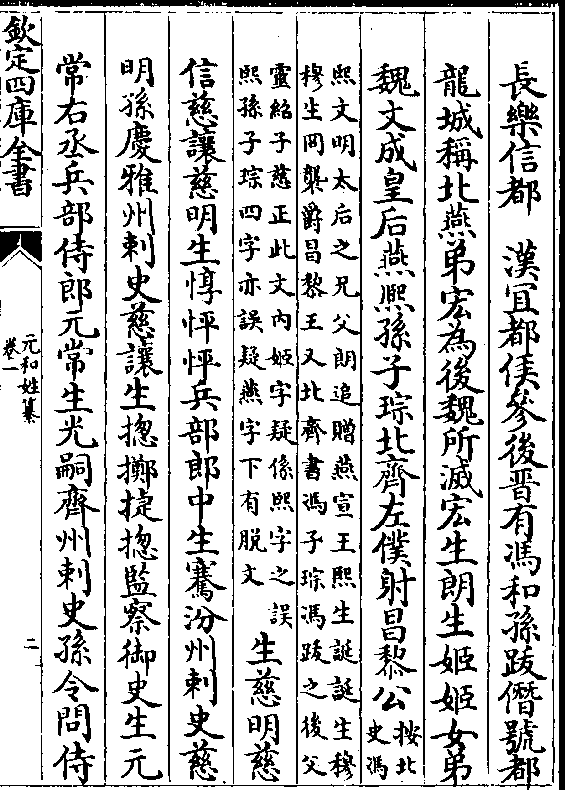 長樂信都　漢宜都侯參後晉有馮和孫跋僭號都
龍城稱北燕弟宏為後魏所滅宏生朗生姬姬女弟
魏文成皇后燕熈孫子琮北齊左僕射昌黎公按北史馮
熙文明太后之兄父朗追贈燕宣王熙生誕誕生穆
穆生冏襲爵昌黎王又北齊書馮子琮馮跋之後父
靈紹子慈正此文内姬字疑係熙字之誤
熙孫子琮四字亦誤疑燕字下有脱文
生慈明慈
信慈讓慈明生惇怦怦兵部郎中生騫汾州刺史慈
明孫慶雅州刺史慈讓生揔擲㨗揔監察御史生元
常右丞兵部侍郎元常生光嗣齊州刺史孫令問侍
欽定四庫全書
元和姓纂
卷一
二